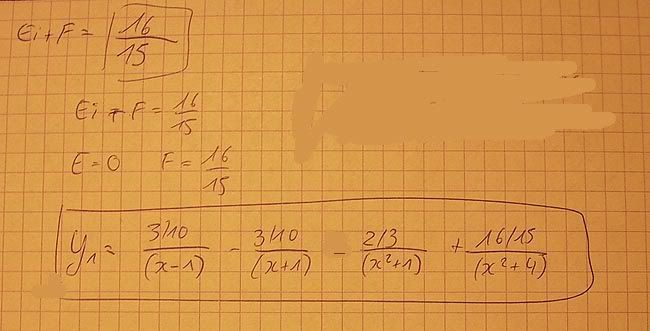 Ei+F = 16/15
Ei + F = 16/15
E = 0 F = 16/15
y₁ = 3/10/(x-1) - 3/10/(x+1) - 2/3/(x²+1) + 16/15/(x²+4)